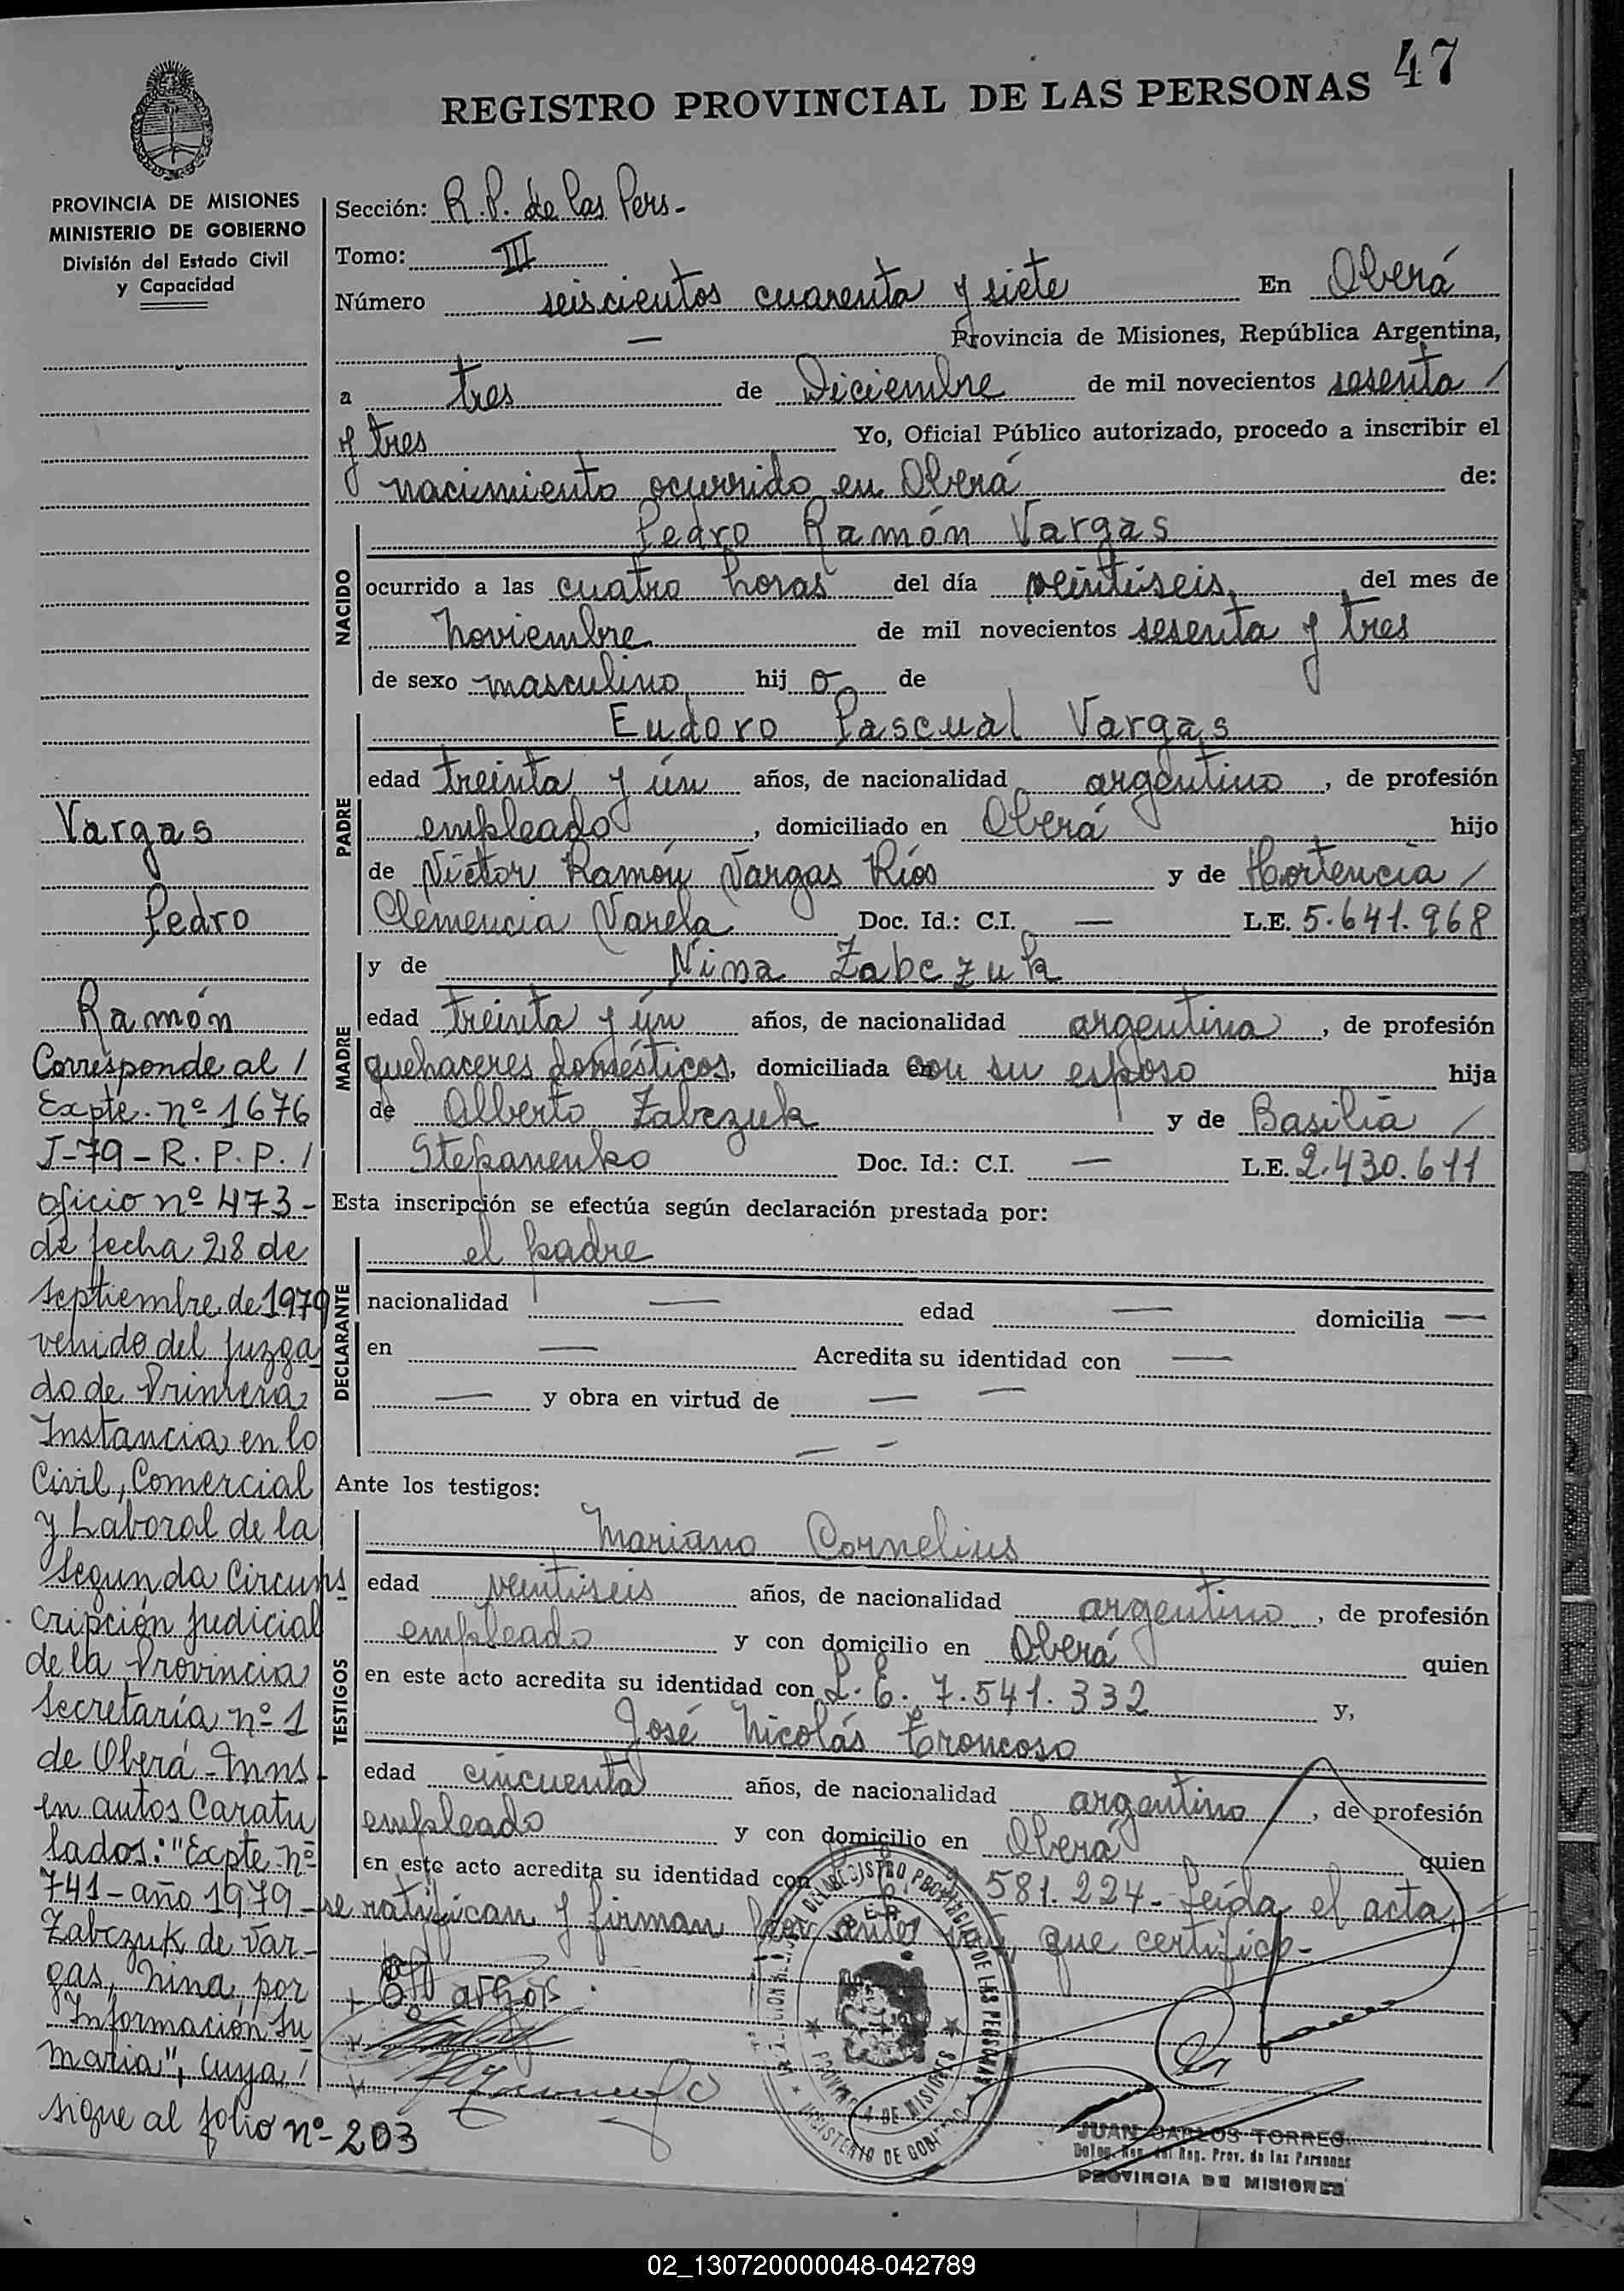 47
REGISTRO PROVINCIAL DE LAS PERSONAS
PROVINCIA DE MISIONES
MINISTERIO DE GOBIERNO
División del Estado Civil
y Capacidad
Sección: R.P. de las Pers.
Tomo: III
Número seiscientos cuarenta y siete En Oberá
— Provincia de Misiones, República Argentina,
a tres de Diciembre de mil novecientos sesenta /
y tres Yo, Oficial Público autorizado, procedo a inscribir el
nacimiento ocurrido en Oberá de:
NACIDO
Pedro Ramón Vargas
ocurrido a las cuatro horas del día veintiseis, del mes de
Noviembre de mil novecientos sesenta y tres
de sexo masculino hij o de
PADRE
Eudoro Pascual Vargas
edad treinta y ún años, de nacionalidad argentino, de profesión
empleado, domiciliado en Oberá hijo
de Víctor Ramón Vargas Ríos y de Hortencia /
Clemencia Varela Doc. Id.: C.I. — L.E. 5.641.968
MADRE
y de Nina Zabczuk
edad treinta y ún años, de nacionalidad argentina, de profesión
quehaceres domésticos, domiciliada en con su esposo hija
de Alberto Zabczuk y de Basilia /
Stepanenko Doc. Id.: C.I. — L.E. 2.430.611
Esta inscripción se efectúa según declaración prestada por:
DECLARANTE
el padre
nacionalidad — edad — domicilia —
en — Acredita su identidad con —
— y obra en virtud de — —
— —
Ante los testigos:
TESTIGOS
Mariano Cornelius
edad veintiseis años, de nacionalidad argentino, de profesión
empleado y con domicilio en Oberá quien
en este acto acredita su identidad con L.E. 7.541.332 y,
José Nicolás Troncoso
edad cincuenta años, de nacionalidad argentino, de profesión
empleado y con domicilio en Oberá quien
en este acto acredita su identidad con 581.224 - Leída el acta,
se ratifican y firman por ante que certifico-
Vargas
Pedro
Ramón
Corresponde al /
Expte. nº 1676
J-79-R.P.P. /
oficio nº 473-
de fecha 28 de
septiembre de 1979
venido del Juzga
do de Primera
Instancia en lo
Civil, Comercial
y Laboral de la
Segunda Circuns
cripción Judicial
de la Provincia
Secretaría nº 1
de Oberá - Mnes.
en autos Caratu
lados: "Expte. nº
741-año 1979-
Zabczuk de Var-
gas, Nina, por
Información Su
maria", cuya /
sigue al folio nº 203
MINISTERIO DE GOBIERNO
PROVINCIA DE MISIONES
JUAN CARLOS TORRES
Deleg. Reg. del Reg. Prov. de las Personas
PROVINCIA DE MISIONES
X
Y
Z
02_130720000048-042789